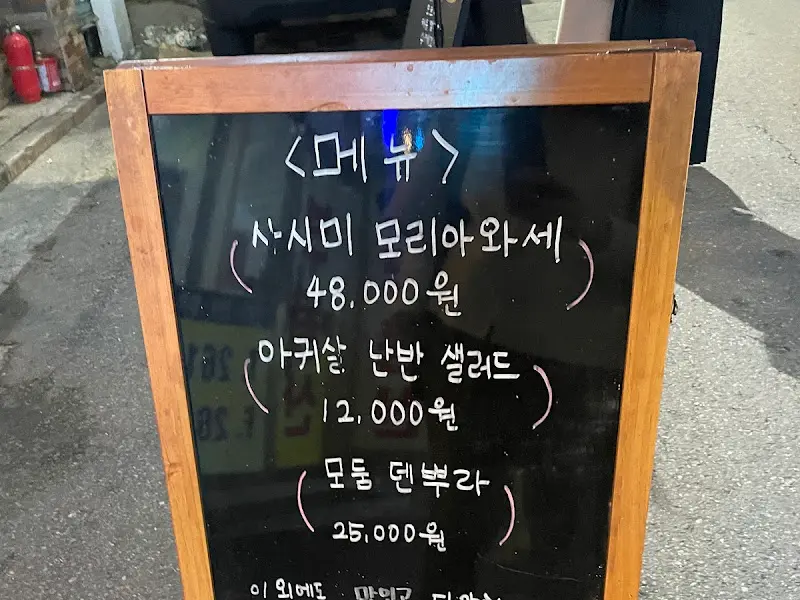 <메뉴>
사시미 모리아와세
48,000원
아귀살 난반 샐러드
12,000원
모둠 덴뿌라
25,000원
이 외에도